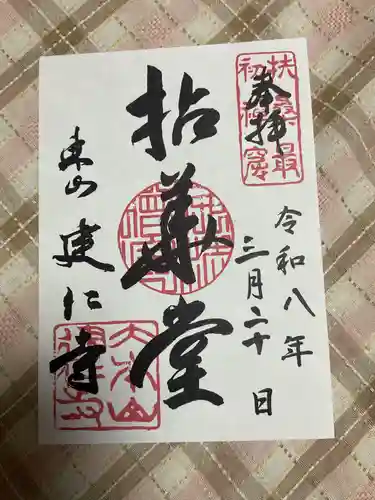 奉拝
令和八年
三月二十日
拈華堂
東山
建仁寺
扶桑最
初禅窟